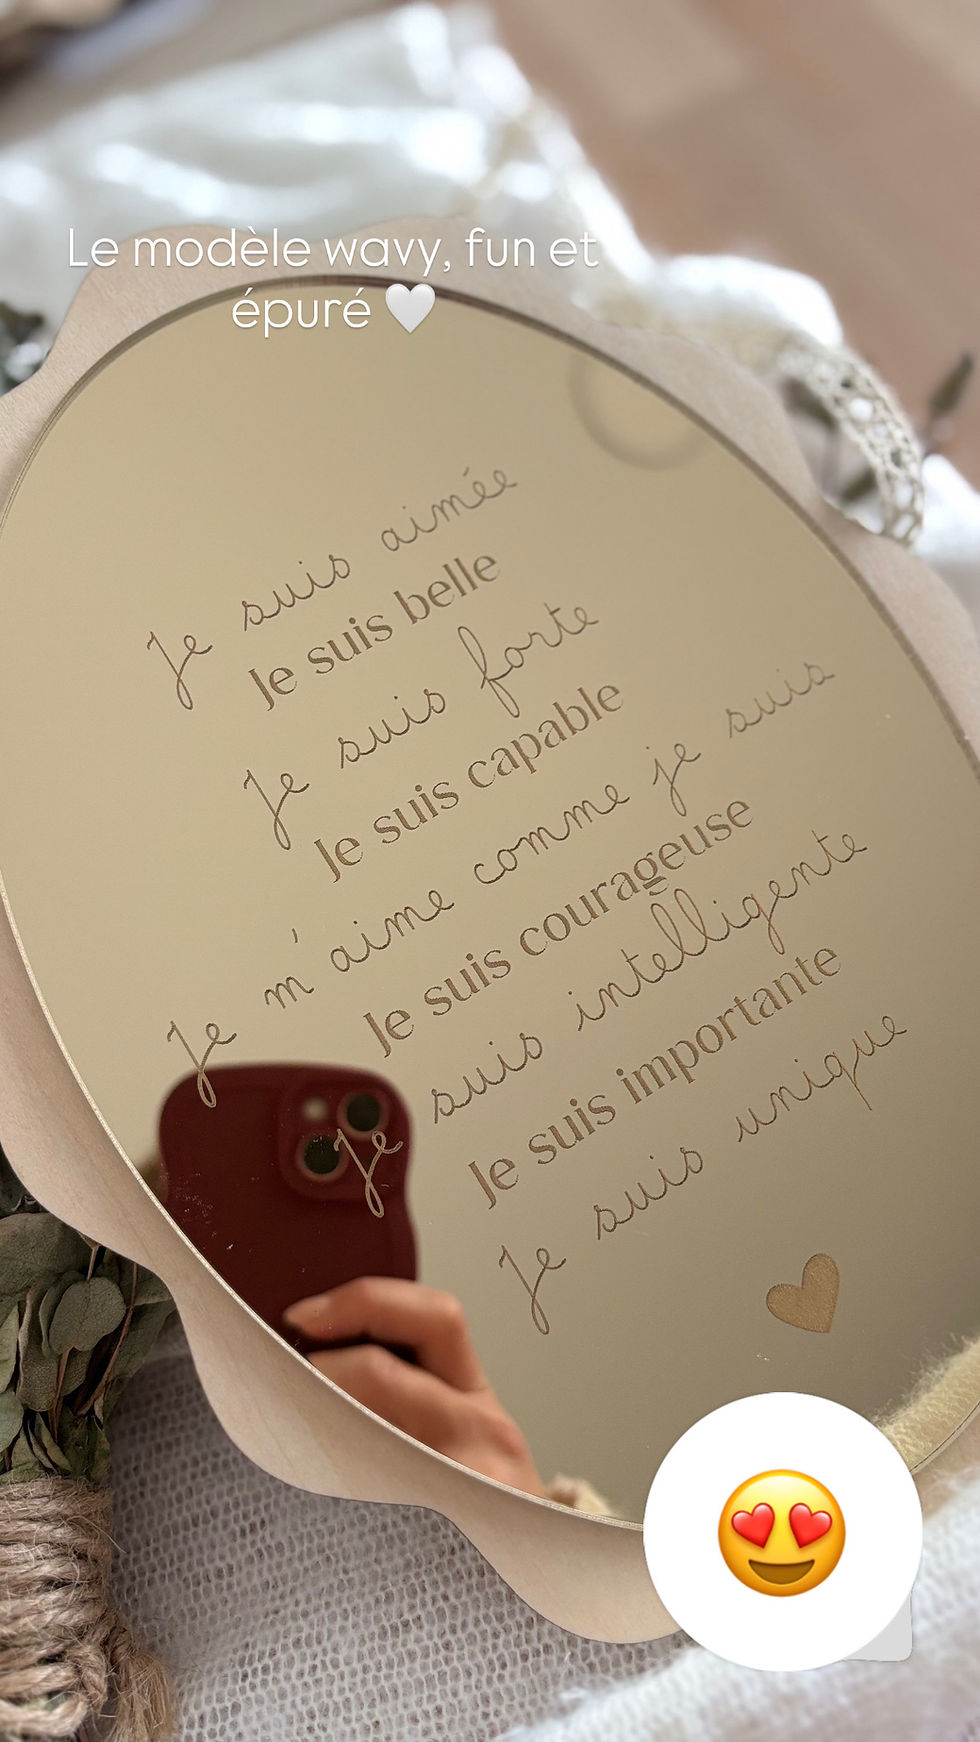 Le modèle wavy, fun et
épuré 🤍
Je suis aimée
Je suis belle
Je suis forte
Je suis capable
Je m'aime comme je suis
Je suis courageuse
Je suis intelligente
Je suis importante
Je suis unique